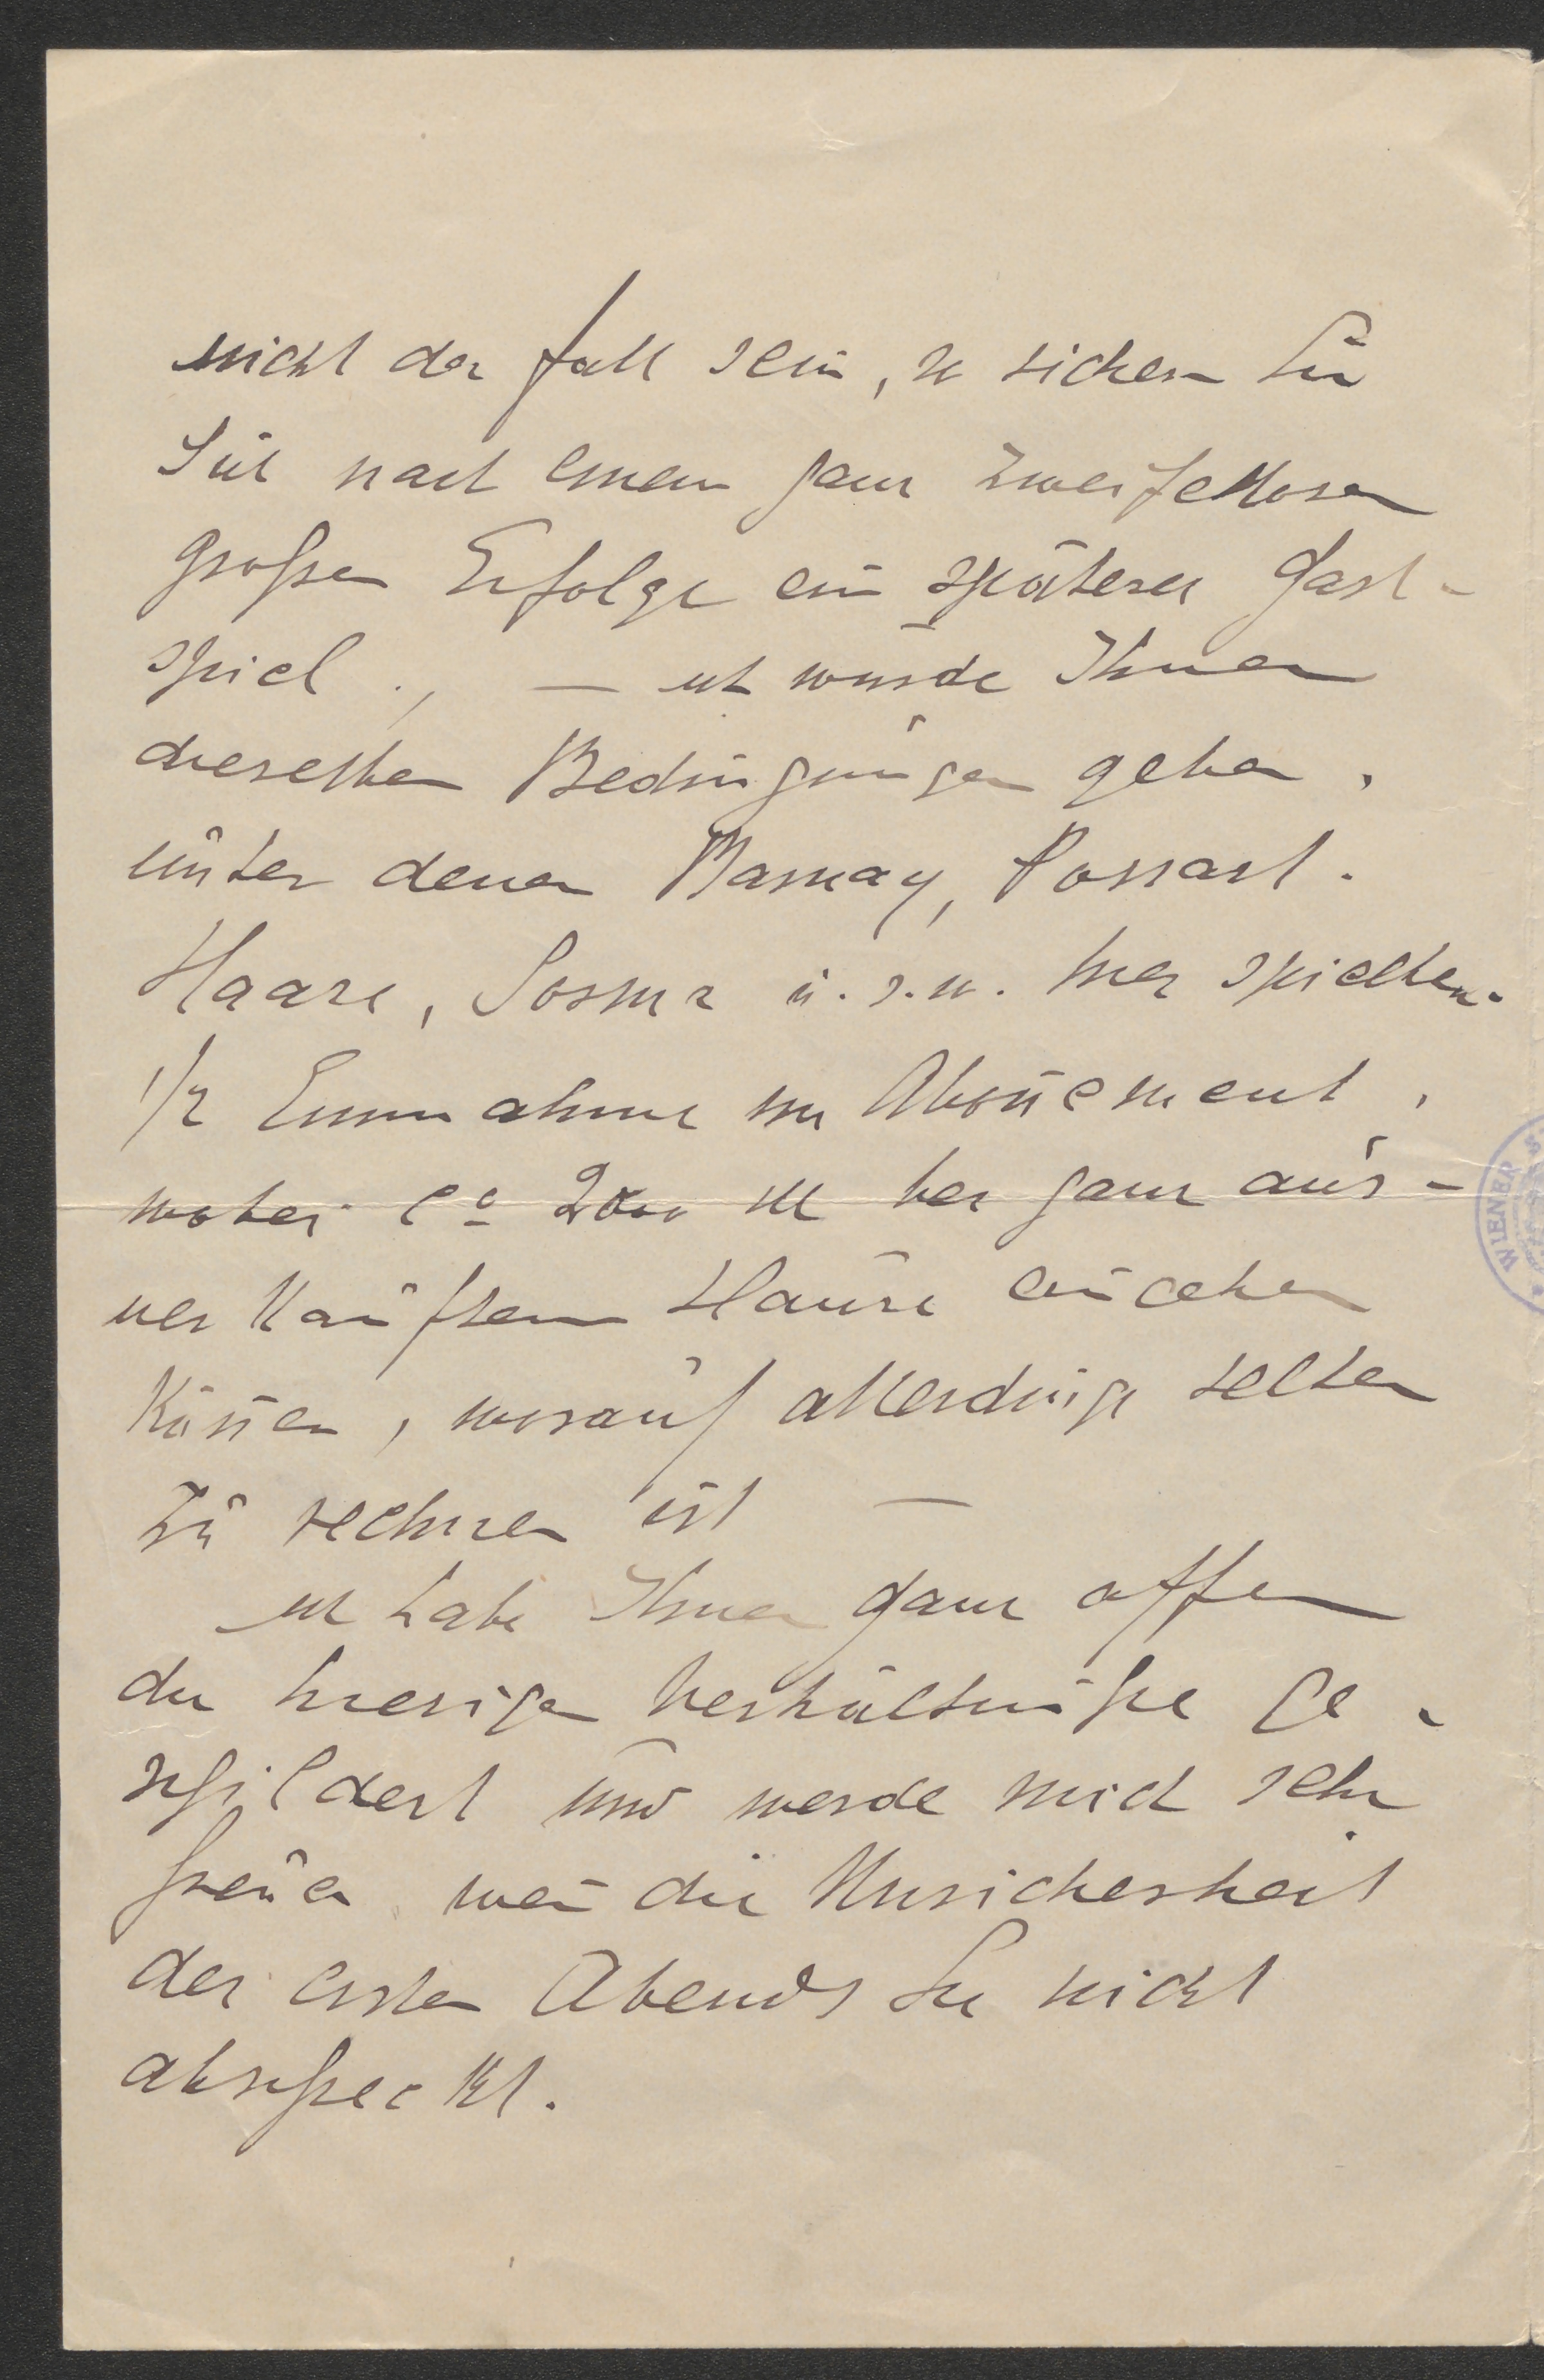 nicht der Fall sein, so sichern Sie
Sich nach einem ganz zweifellosen
großen Erfolge ein späteres Gast-
spiel., — ich würde Ihnen
dieselben Bedingungen geben,
unter denen Barnay, Possart.
Haase, Sorma u. s. w. hier spielten.
1/2 Einnahme im Abon̄ement,
wobei ca 2000 M bei ganz aus-
verkauftem Hause eingehen
kön̄en, worauf allerdings selten
zu rechnen ist —
ich habe Ihnen ganz offen
die hiesigen Verhältniße ge-
schildert und werde mich sehr
freuen wen̄ die Unsicherheit
des ersten Abends Sie nicht
abschreckt.
WIENER